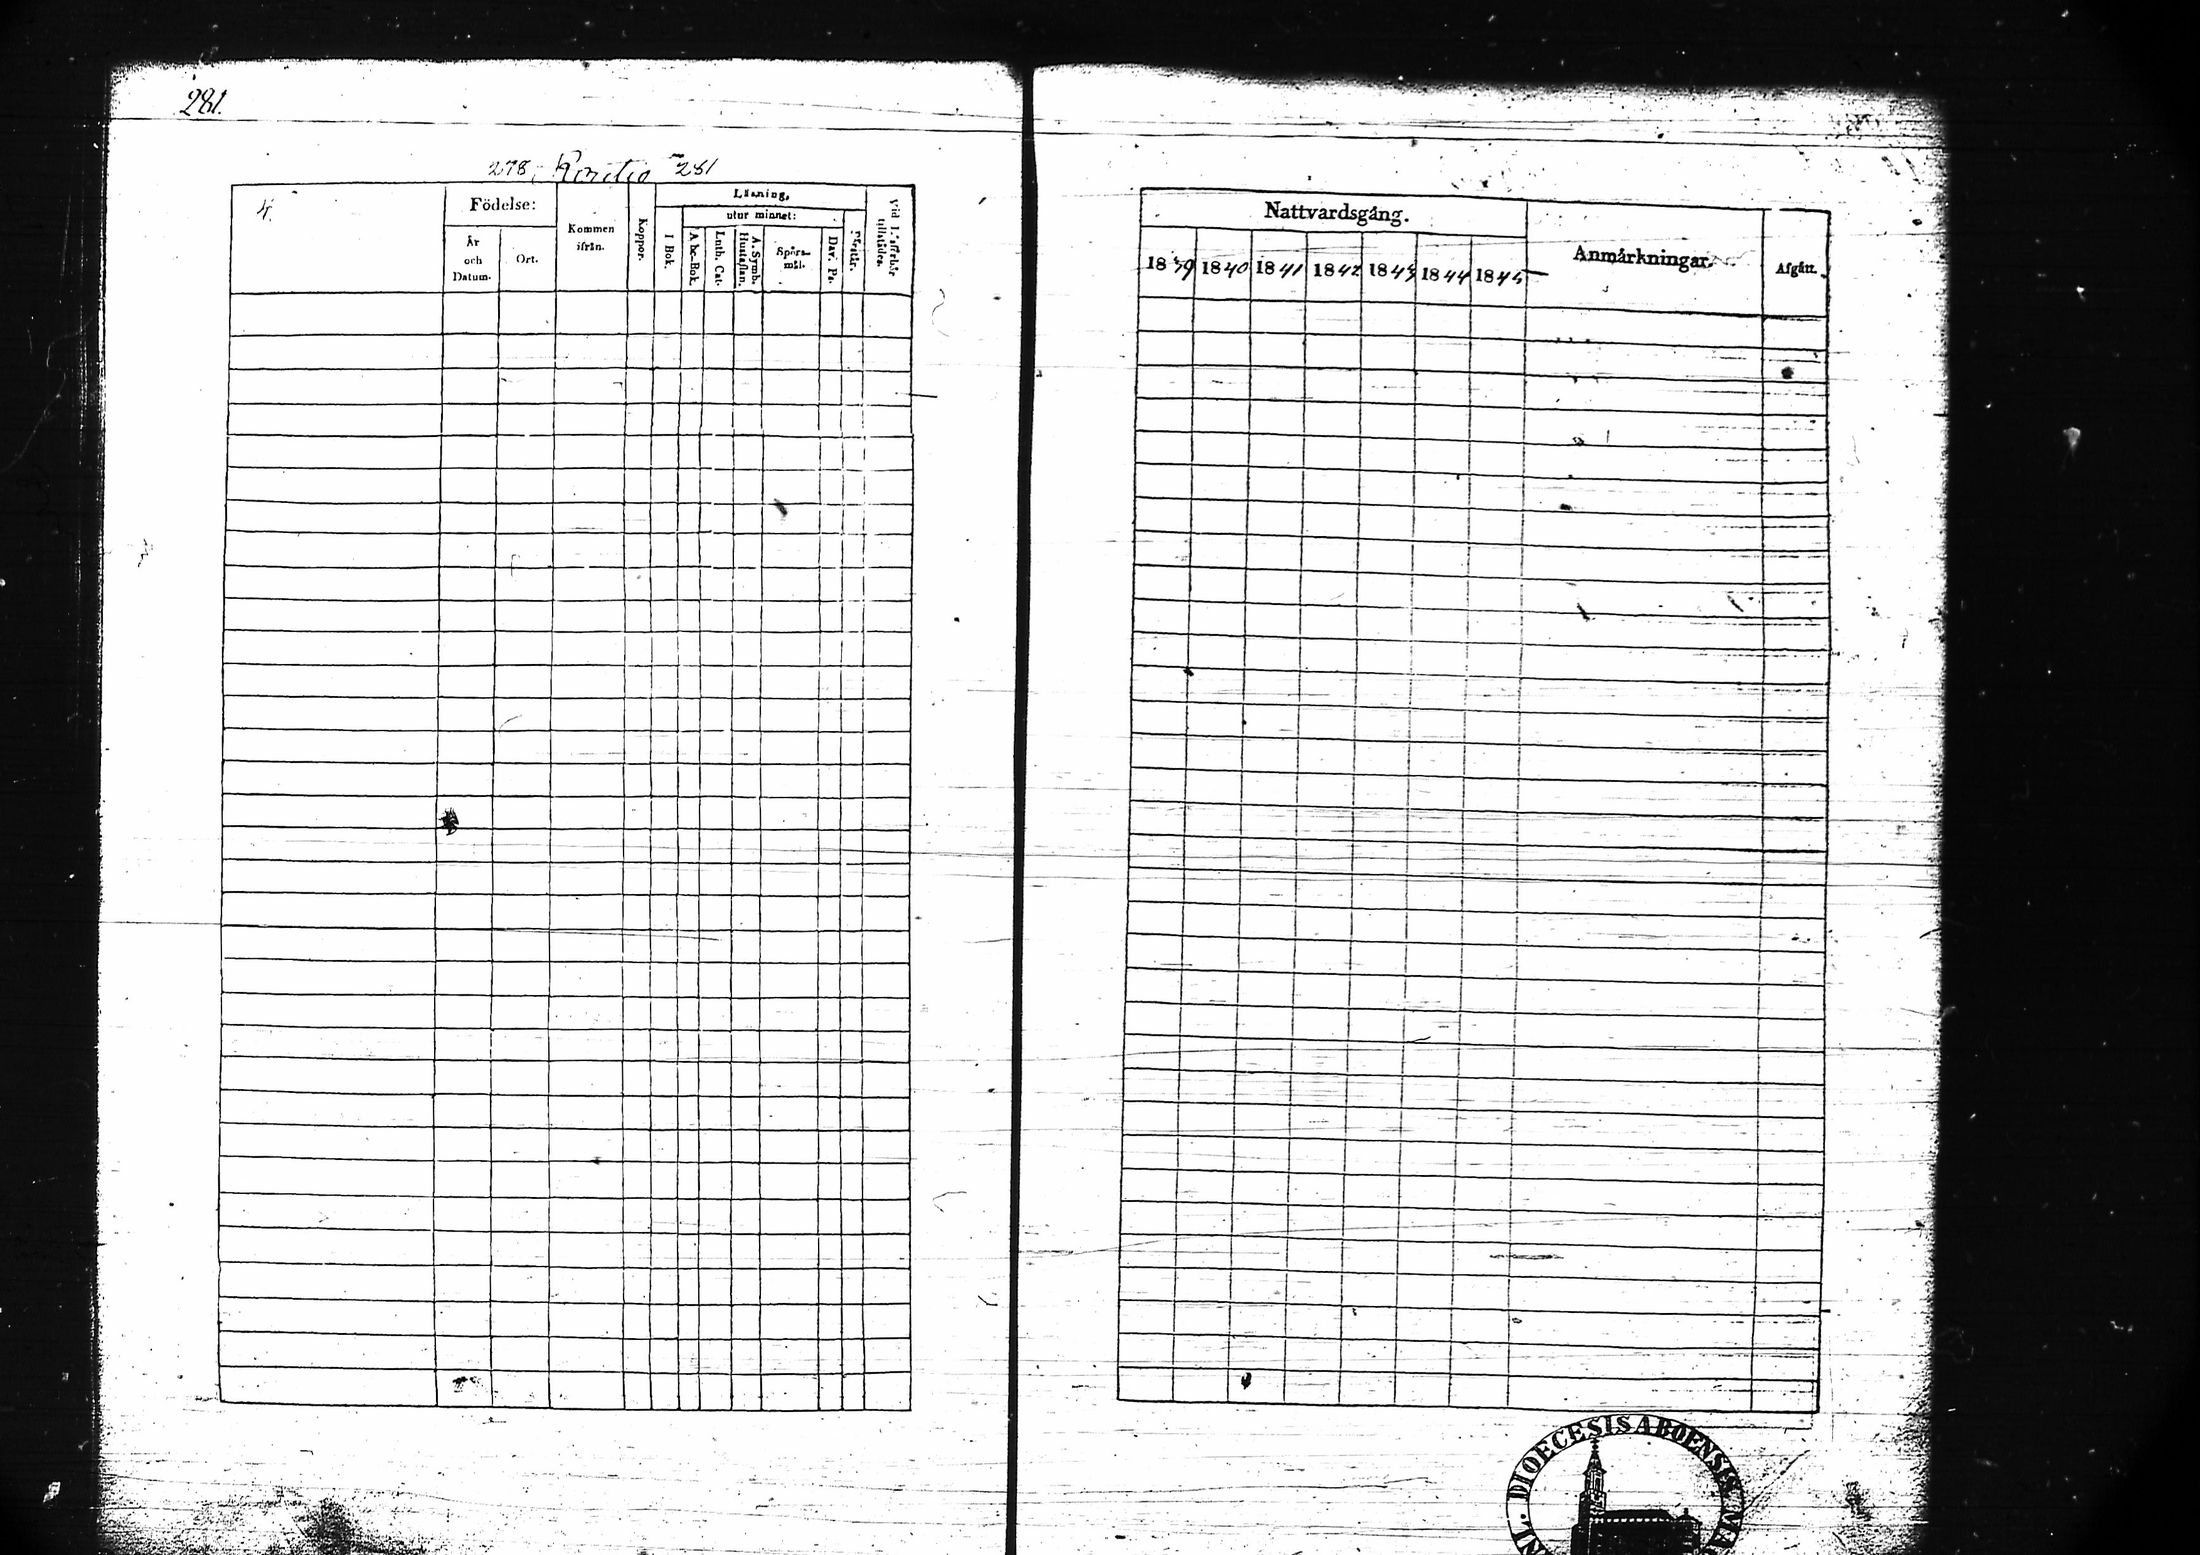 281.
278, 281
4.
Födelse:
År och Datum.
Ort.
Kommen ifrån.
Koppor.
Läsning.
I Bok.
utur minnet:
Abc-Bok.
Luth. Cat.
A. Symb. Hustaflan.
Spörs-mål.
Dav. Ps.
Förstår.
Vid Läsförhör tillstädes.
Nattvardsgång.
1839 1840 1841 1842 1843 1844 1845
Anmärkningar.
Afgått.
DIOECESIS ABOENSIS